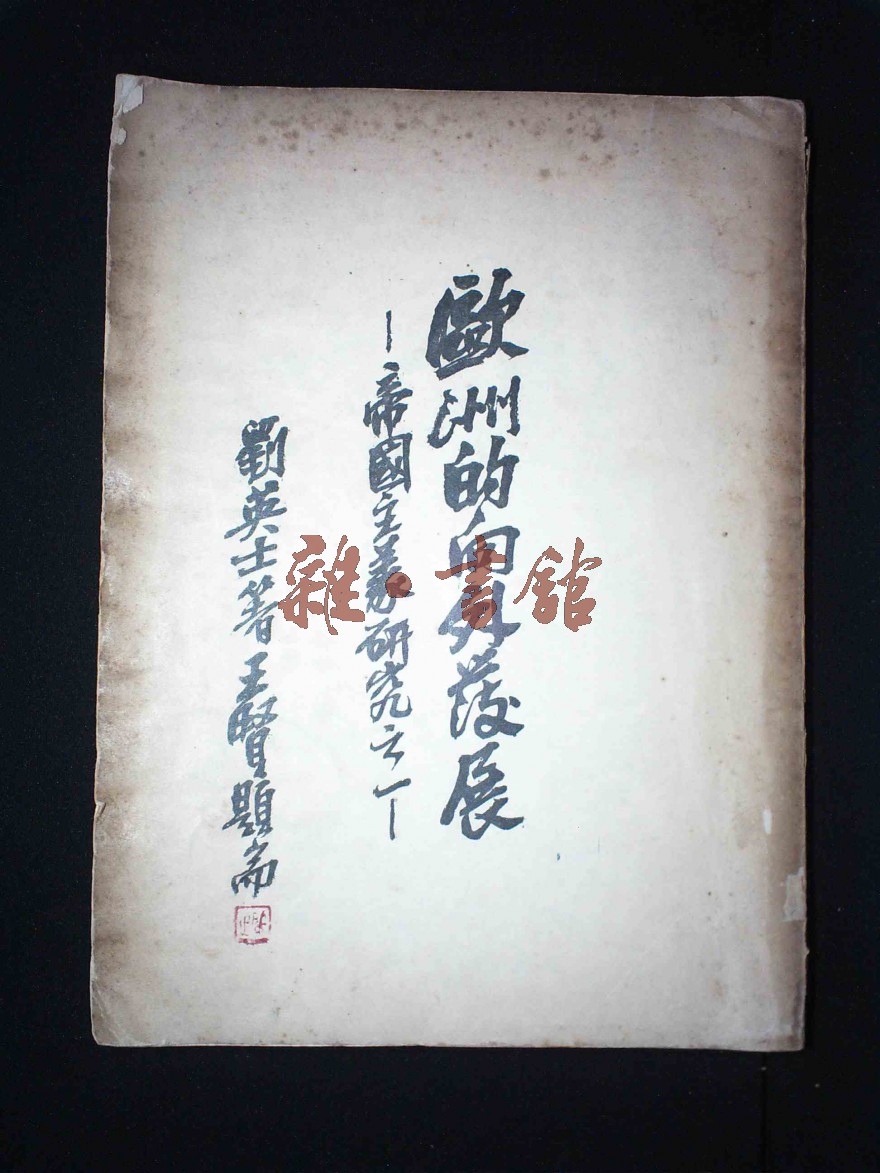 歐洲的向外發展
—帝國主義研究之一—
劉英士著王賢題耑
雜·書館